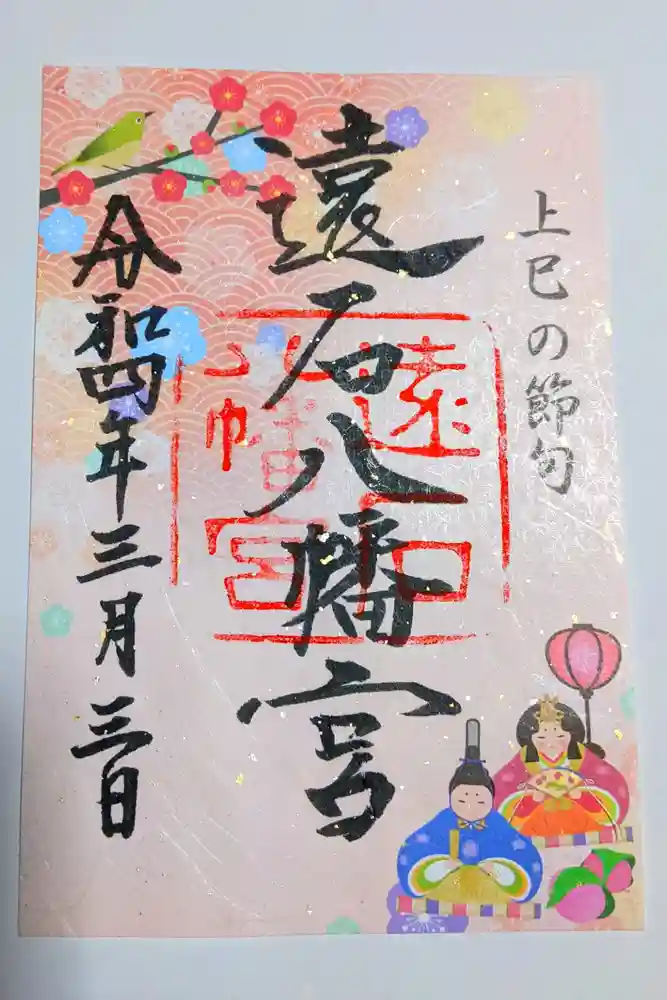 上巳の節句
遠石八幡宮
遠石
八幡宮
令和四年三月三日